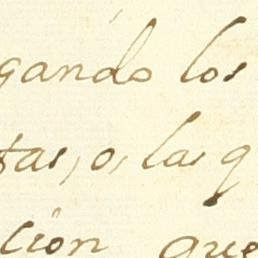 gando los
tas, o, las q
cion que